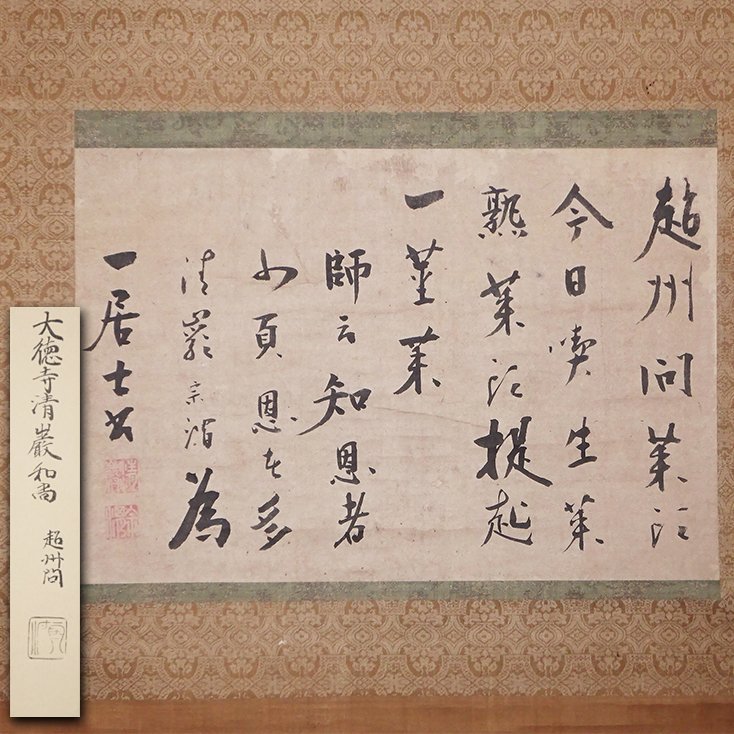 趙州問菜頭
今日喫生菜
熟菜頭提起
一莖菜
師云知恩者
少負恩者多
清巖宗渭為
一居士
大徳寺清巖和尚
趙州問